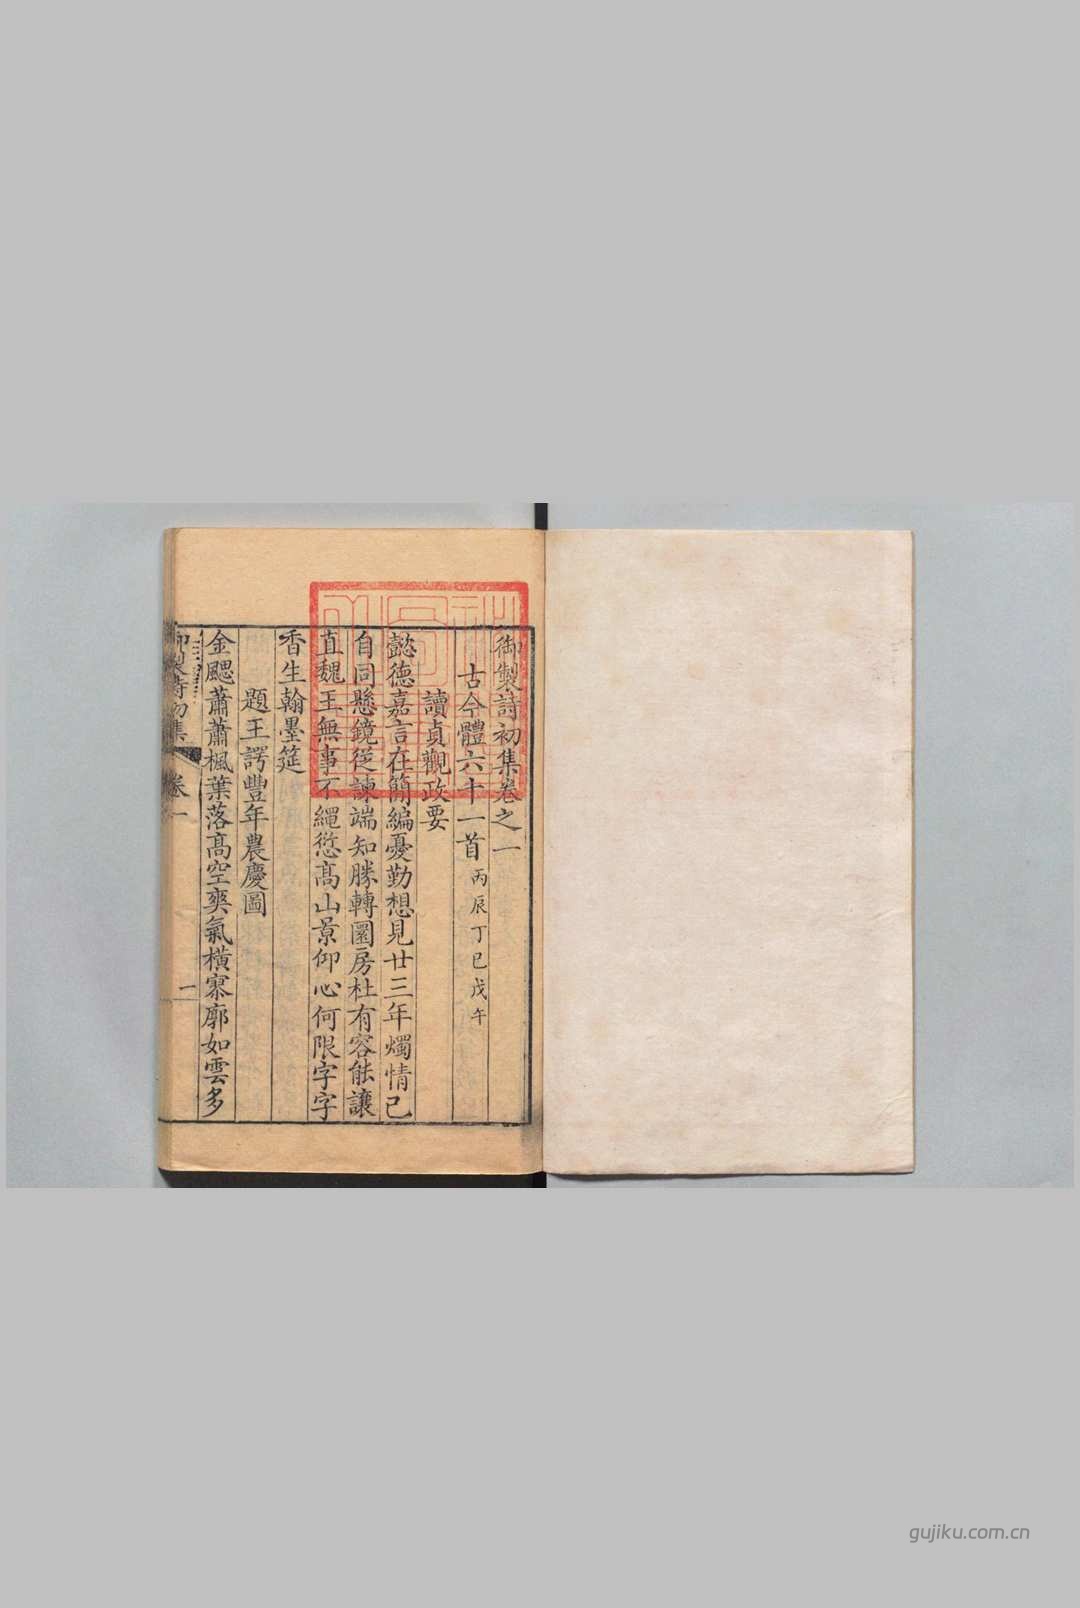 御製詩初集卷之一
古今體六十一首丙辰丁巳戊午
讀貞觀政要
懿德嘉言在簡編憂勤想見廿三年燭情已
自同懸鏡從諫端知勝轉圜房杜有容能讓
直魏王無事不繩愆高山景仰心何限字字
香生翰墨筵
題王諤豐年農慶圖
金颸蕭蕭楓葉落高空爽氣橫寥廓如雲多
御製詩初集 卷一 一
gujiku.com.cn